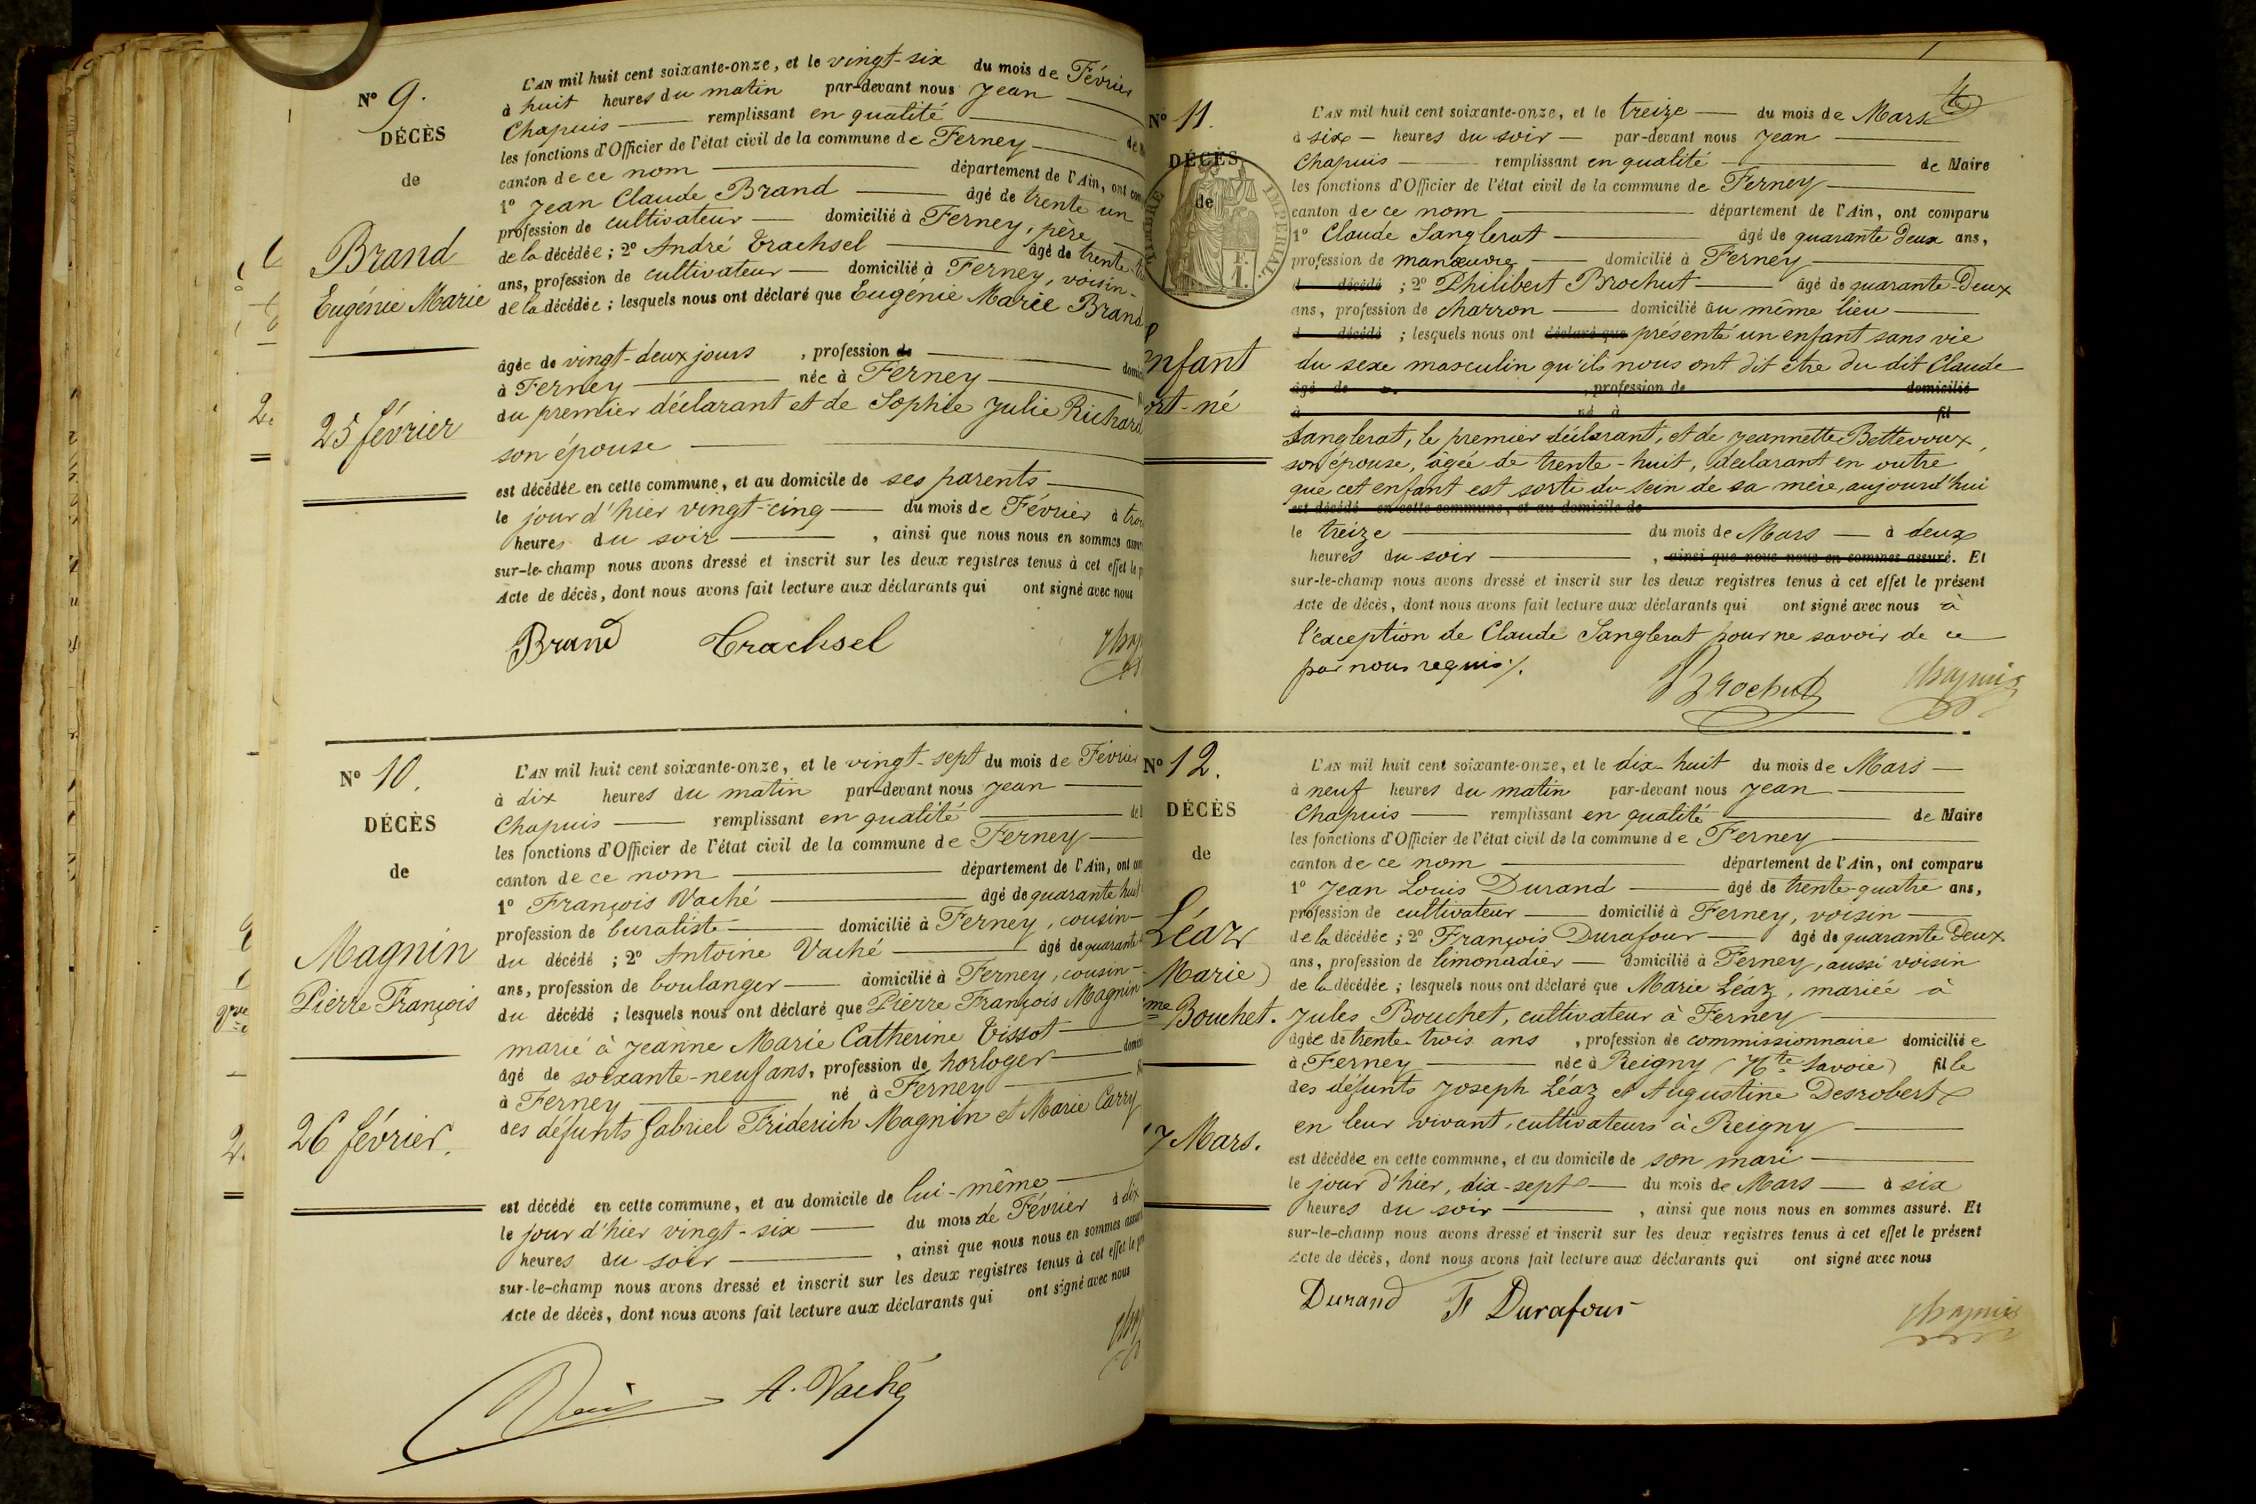 N° 9.
DÉCÈS
de
Brand
Eugénie Marie
25 février
L'AN mil huit cent soixante-onze, et le vingt-six du mois de Février
à huit heures du matin par-devant nous Jean
Chapuis remplissant en qualité
les fonctions d'Officier de l'état civil de la commune de Ferney
canton de ce nom département de l'Ain, ont
1° Jean Claude Brand âgé de trente un
profession de cultivateur domicilié à Ferney, père
de la décédée ; 2° André Trachsel âgé de trente
ans, profession de cultivateur domicilié à Ferney, voisin
de la décédée ; lesquels nous ont déclaré que Eugénie Marie Brand
âgée de vingt-deux jours , profession de
à Ferney née à Ferney
du premier déclarant et de Sophie Julie Richard
son épouse
est décédée en cette commune, et au domicile de ses parents
le jour d'hier vingt-cinq du mois de Février à
heures du soir , ainsi que nous nous en sommes
sur-le-champ nous avons dressé et inscrit sur les deux registres tenus à cet effet le
Acte de décès, dont nous avons fait lecture aux déclarants qui ont signé avec nous
Brand Trachsel
N° 10.
DÉCÈS
de
Magnin
Pierre François
26 février.
L'AN mil huit cent soixante-onze, et le vingt-sept du mois de Février
à dix heures du matin par-devant nous Jean
Chapuis remplissant en qualité
les fonctions d'Officier de l'état civil de la commune de Ferney
canton de ce nom département de l'Ain, ont
1° François Vaché âgé de quarante huit
profession de buraliste domicilié à Ferney, cousin
du décédé ; 2° Antoine Vaché âgé de quarante
ans, profession de boulanger domicilié à Ferney, cousin
du décédé ; lesquels nous ont déclaré que Pierre François Magnin
marié à Jeanne Marie Catherine Tissot
âgé de soixante-neuf ans, profession de horloger
à Ferney né à Ferney
des défunts Gabriel Friderich Magnin et Marie Carry
est décédé en cette commune, et au domicile de lui-même
le jour d'hier vingt-six du mois de Février à dix
heures du soir , ainsi que nous nous en sommes
sur-le-champ nous avons dressé et inscrit sur les deux registres tenus à cet effet le
Acte de décès, dont nous avons fait lecture aux déclarants qui ont signé avec nous
A. Vaché
N° 11.
DÉCÈS
de
TIMBRE IMPÉRIAL
F.
1.
L'AN mil huit cent soixante-onze, et le treize du mois de Mars
à six heures du soir par-devant nous Jean
Chapuis remplissant en qualité de Maire
les fonctions d'Officier de l'état civil de la commune de Ferney
canton de ce nom département de l'Ain, ont comparu
1° Claude Sanglerat âgé de quarante deux ans,
profession de manœuvre domicilié à Ferney
d décédé ; 2° Philibert Brochut âgé de quarante Deux
ans, profession de charron domicilié au même lieu
d décédé ; lesquels nous ont déclaré que présenté un enfant sans vie
du sexe masculin qu'ils nous ont dit être du dit Claude
âgé de , profession de domicilié
à né à fil
Sanglerat, le premier déclarant, et de Jeannette Bettevoux,
son épouse, âgée de trente-huit, déclarant en outre
que cet enfant est sorti du sein de sa mère, aujourd'hui
est décédé en cette commune, et au domicile de
le treize du mois de Mars à deux
heures du soir , ainsi que nous nous en sommes assuré. Et
sur-le-champ nous avons dressé et inscrit sur les deux registres tenus à cet effet le présent
Acte de décès, dont nous avons fait lecture aux déclarants qui ont signé avec nous à
l'exception de Claude Sanglerat pour ne savoir de ce
par nous requis ./.
Brochut Chapuis
N° 12.
DÉCÈS
de
Léaz
Marie
Bouchet.
17 Mars.
L'AN mil huit cent soixante-onze, et le dix-huit du mois de Mars
à neuf heures du matin par-devant nous Jean
Chapuis remplissant en qualité de Maire
les fonctions d'Officier de l'état civil de la commune de Ferney
canton de ce nom département de l'Ain, ont comparu
1° Jean Louis Durand âgé de trente-quatre ans,
profession de cultivateur domicilié à Ferney, voisin
de la décédée ; 2° François Durafour âgé de quarante Deux
ans, profession de limonadier domicilié à Ferney, aussi voisin
de la décédée ; lesquels nous ont déclaré que Marie Léaz, mariée à
Jules Bouchet, cultivateur à Ferney
âgée de trente-trois ans , profession de commissionnaire domiciliée
à Ferney née à Reigny (Hte Savoie) fille
des défunts Joseph Léaz et Augustine Desrobert
en leur vivant, cultivateurs à Reigny
est décédée en cette commune, et au domicile de son mari
le jour d'hier, dix-sept du mois de Mars à six
heures du soir , ainsi que nous nous en sommes assuré. Et
sur-le-champ nous avons dressé et inscrit sur les deux registres tenus à cet effet le présent
Acte de décès, dont nous avons fait lecture aux déclarants qui ont signé avec nous
Durand Fs Durafour Chapuis